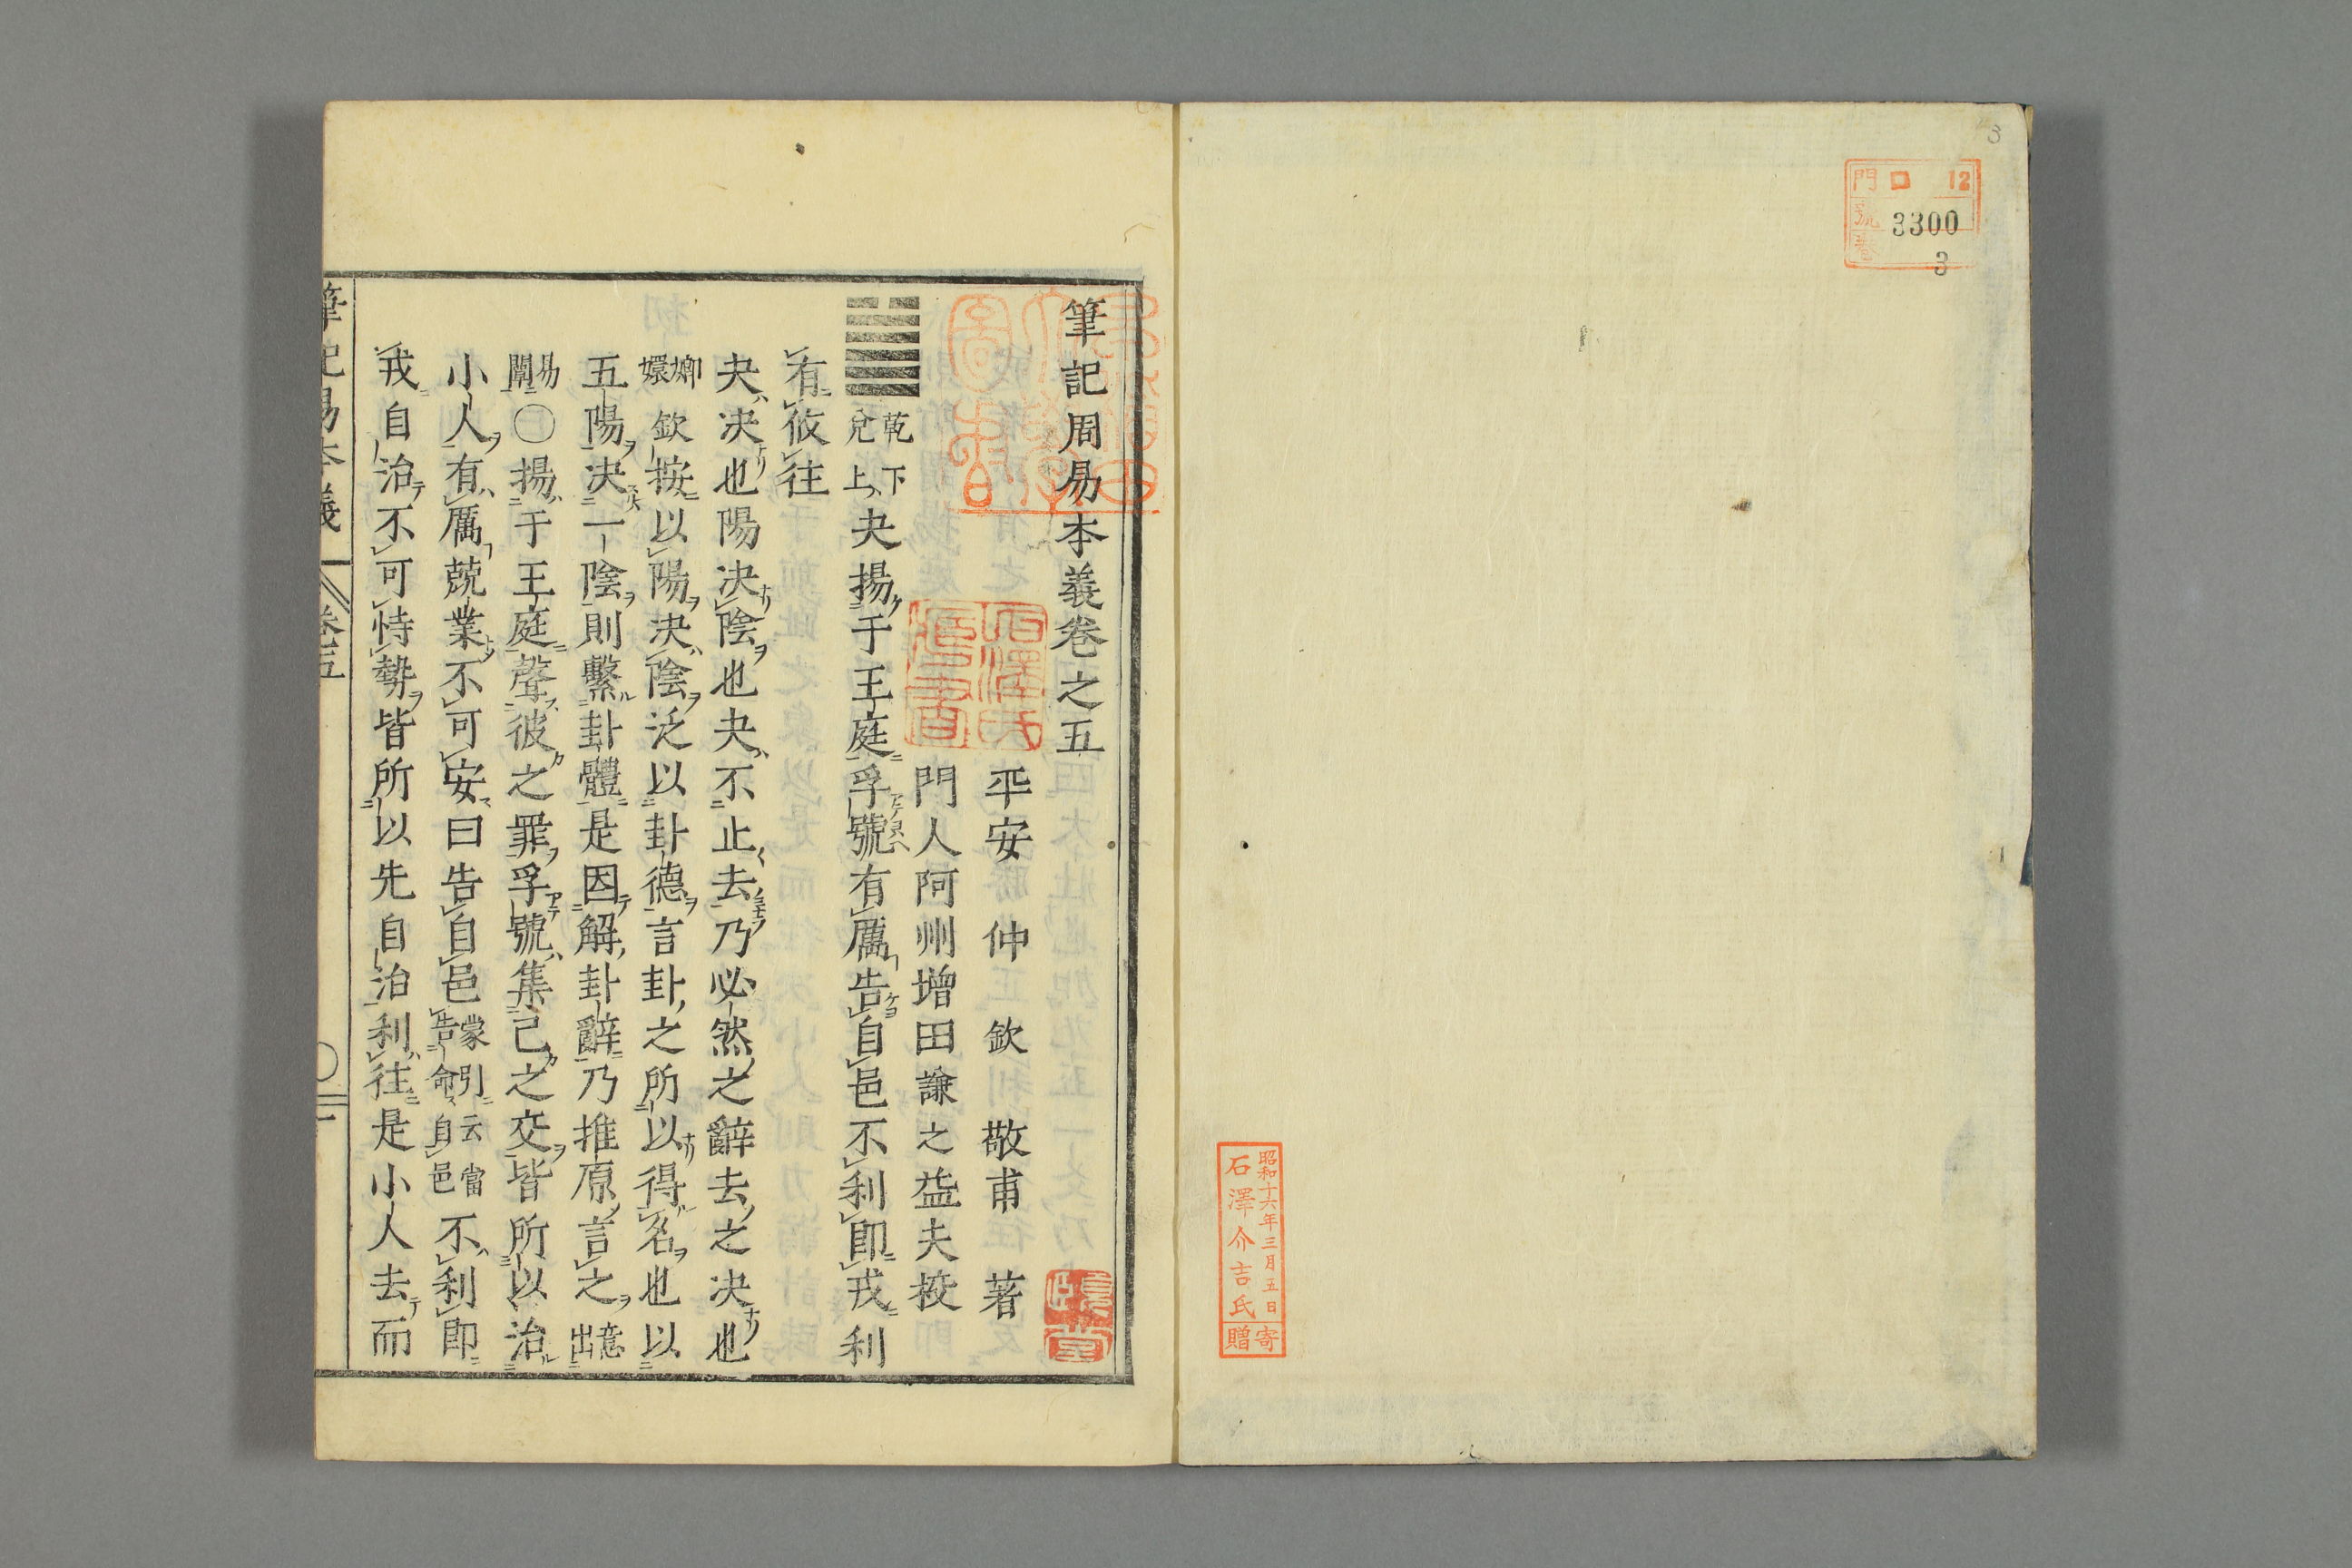 3
門 ロ 12
號 3300
卷 3
昭和十六年三月五日
石澤介吉氏
寄贈
筆記周易本義卷之五
平安 仲 欽 敬甫 著
門人阿州增田謙之益夫校
乾下兌上夬揚于王庭孚號有厲告自邑不利即戎利
有攸往
夬決也陽決陰也夬不止去乃必然之辭去之決也
嫏嬛欽按以陽決陰泛以卦德言卦之所以得名也以
五陽決一陰則繫卦體是因解卦辭乃推原言之意出
易闡〇揚于王庭聲彼之罪孚號集己之交皆所以治
小人有厲兢業不可安曰告自邑蒙引云當告命自邑不利即
戎自治不可恃勢皆所以先自治利往是小人去而
筆記易本義 卷五 〇一